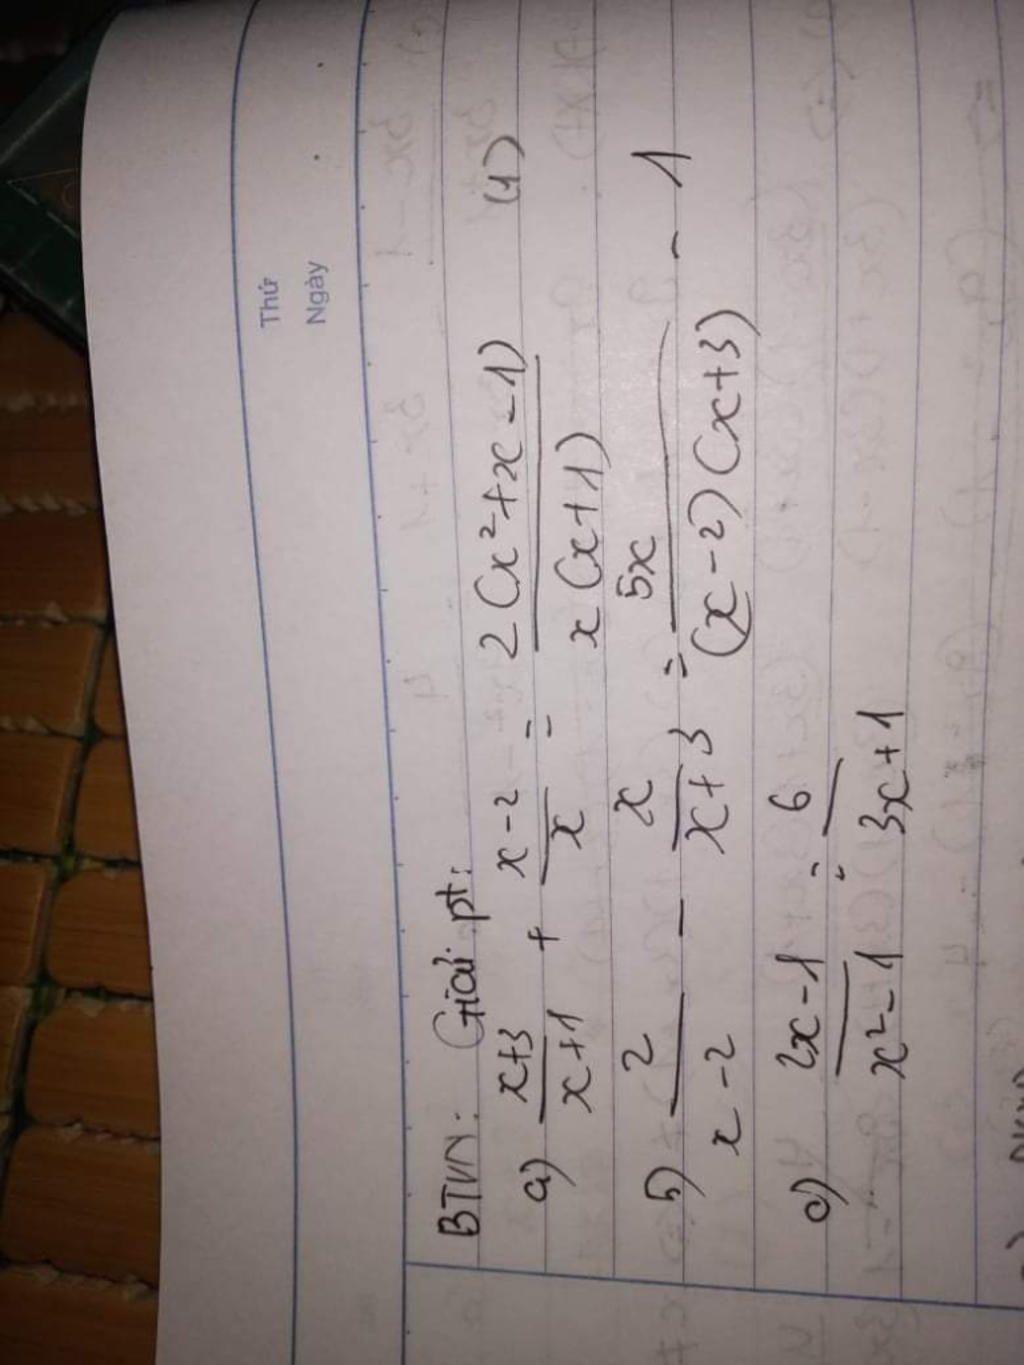 Thứ
Ngày
BTVN: Giải pt:
a) \frac{x+3}{x+1} + \frac{x-2}{x} = \frac{2(x²+x-1)}{x(x+1)} (1)
b) \frac{2}{x-2} - \frac{x}{x+3} = \frac{5x}{(x-2)(x+3)} - 1
c) \frac{2x-1}{x²-1} = \frac{6}{3x+1}